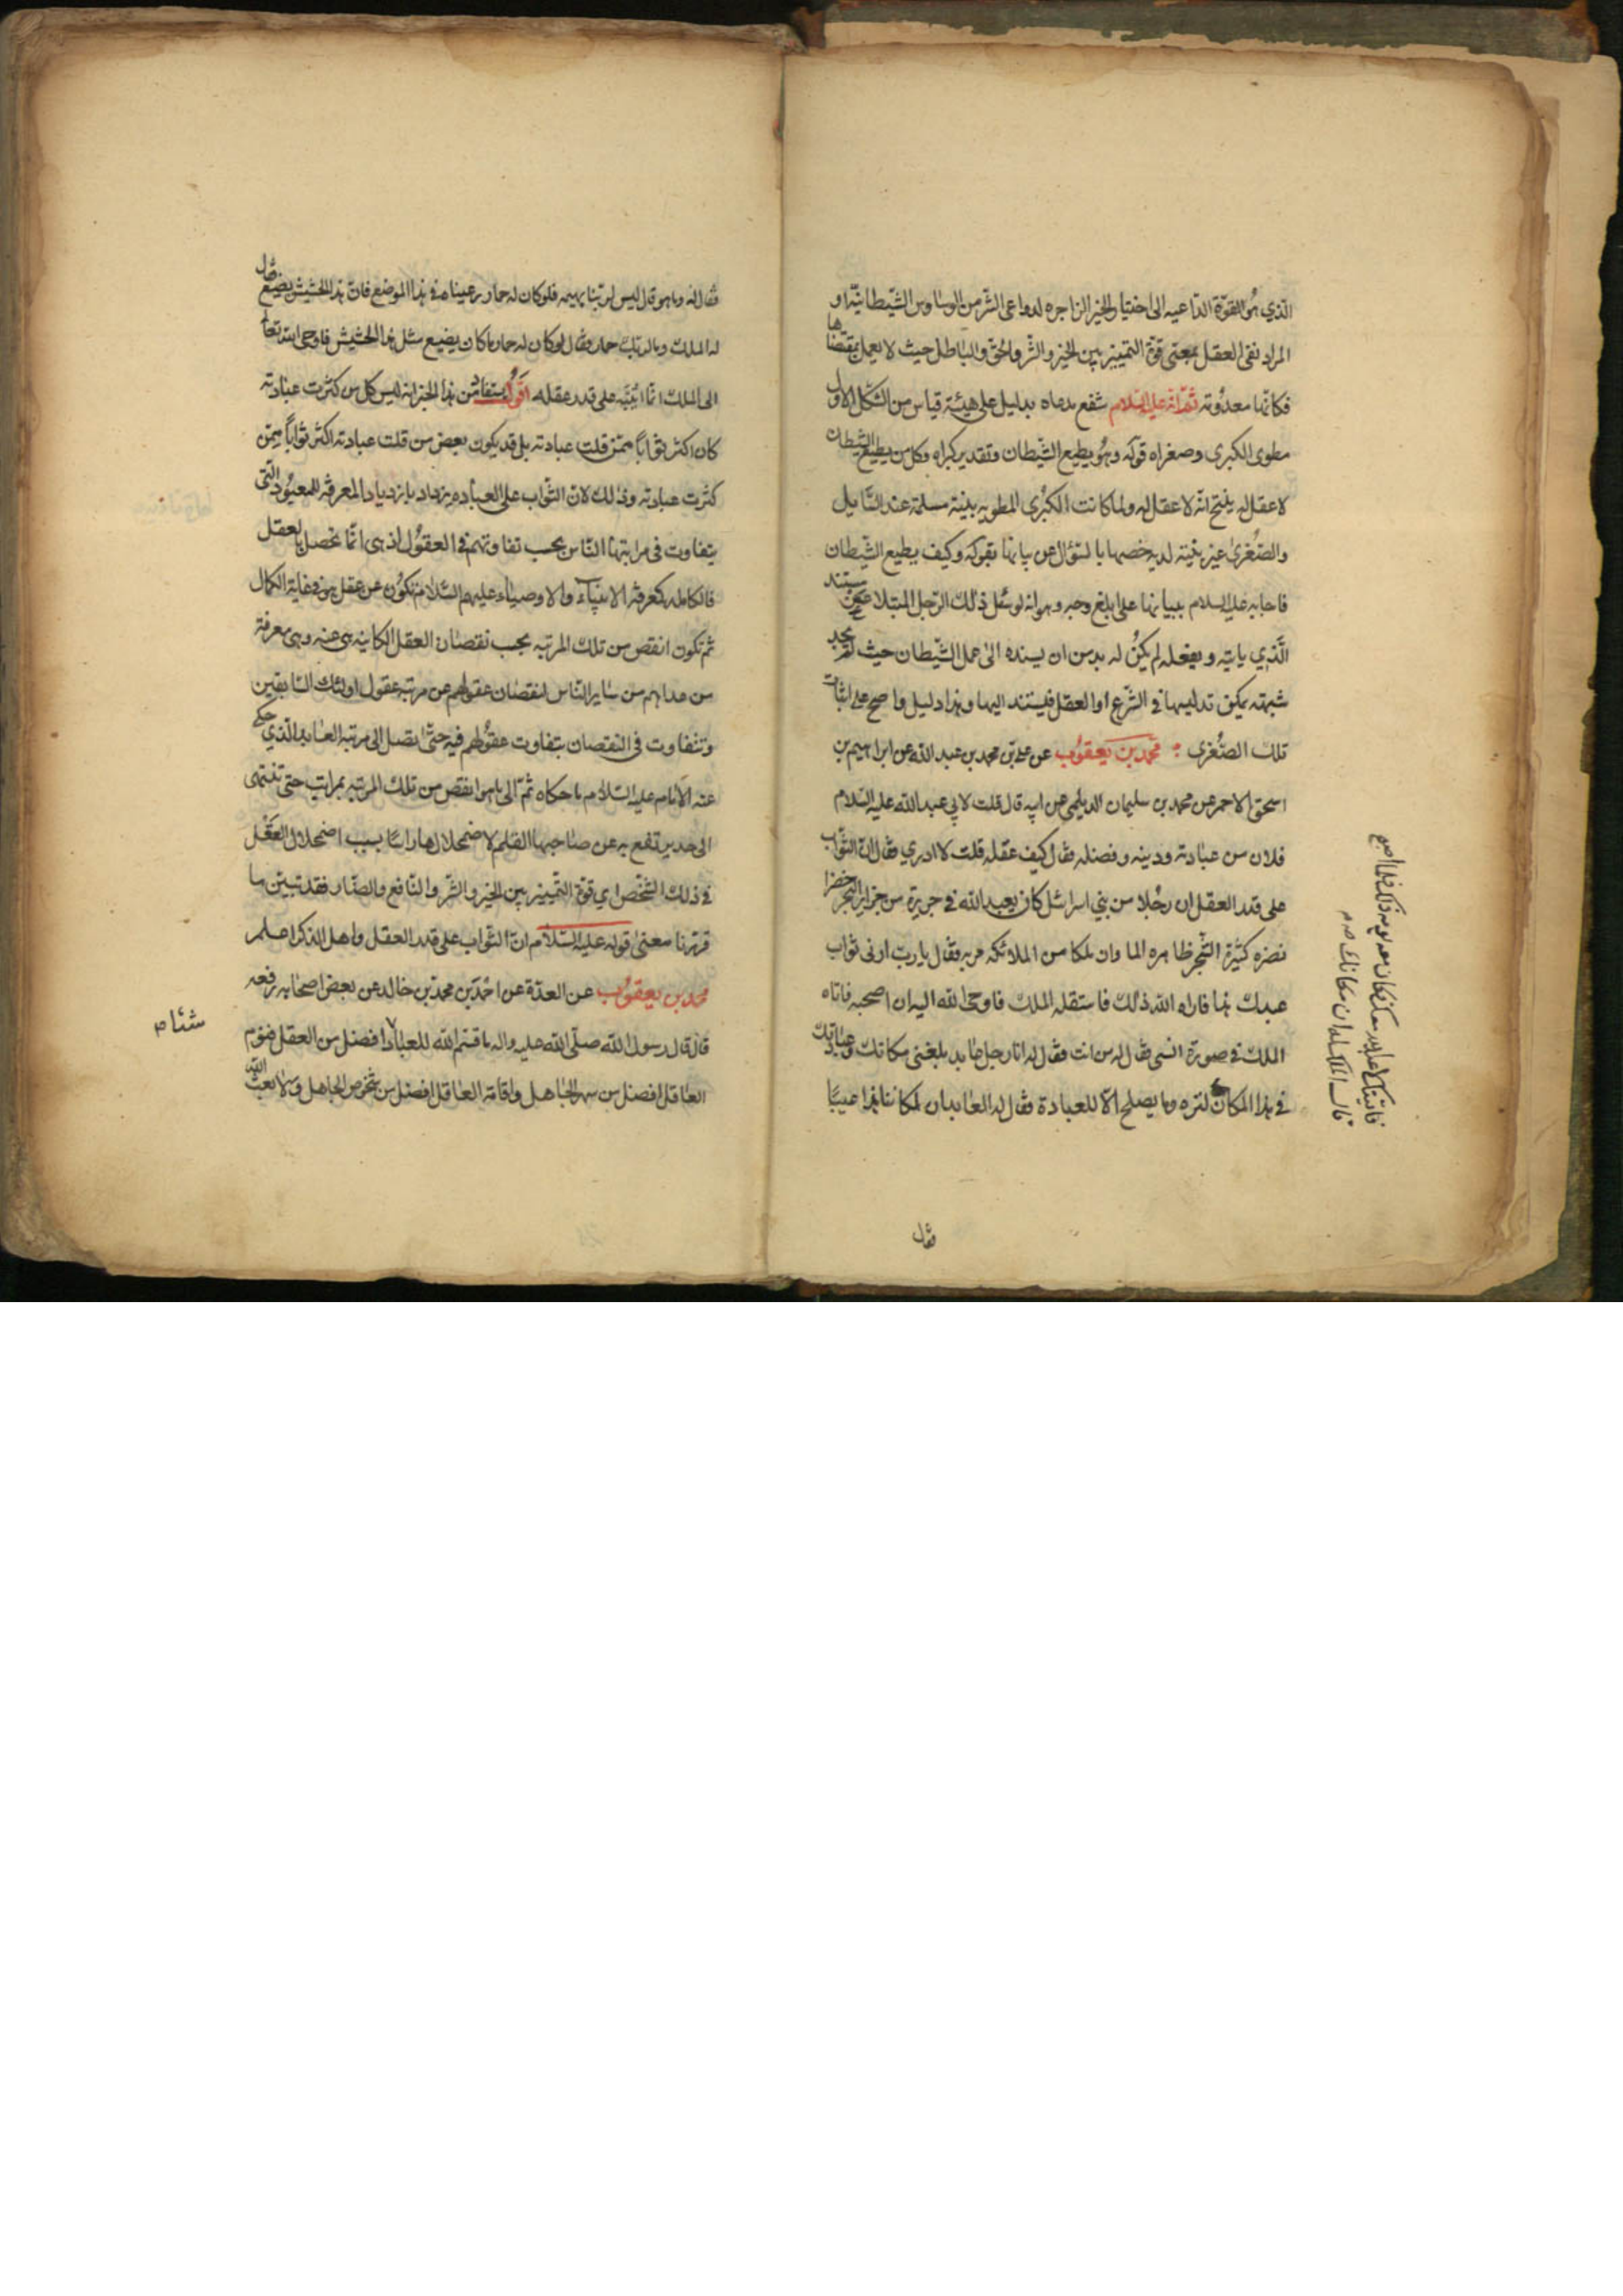 الذي هو القوة الداعيه الى اختيار الخير الزاجره لدواعى الشر من الوساوس الشيطانية او
المراد نفى العقل بمعنى قوة التمييز بين الخير والشر والحق والباطل حيث لا يعمل بمقتضاها
فكانها معدومة ثم انه عليه السلام شفع مدعاه بدليل على هيئة قياس من الشكل الاول
مطوى الكبرى وصغراه قوله وهو يطيع الشيطان وتقدير كبراه وكل من يطيع الشيطان
لا عقل له ينتج انه لا عقل له ولما كانت الكبرى المطويه بينة مسلمة عند السايل
والصغرى غير بينة لديه خصها بالسؤال عن بيانها بقوله وكيف يطيع الشيطان
فاجابه عليه السلام ببيانها على ابلغ وجه وهو انه لو سئل ذلك الرجل المبتلا عن مستند
الذي ياتيه ويفعله لم يكن له بد من ان يسنده الى عمل الشيطان حيث لم يجد
شبهته يمكن تدليسها في الشرع او العقل فيستند اليها وهذا دليل واضح على اثبات
تلك الصغرى محمد بن يعقوب عن علي بن محمد بن عبد الله عن ابراهيم بن
اسحق الاحمر عن محمد بن سليمان الديلمي عن ابيه قال قلت لابي عبد الله عليه السلام
فلان من عبادته ودينه وفضله فقال كيف عقله قلت لا ادري فقال ان الثواب
على قدر العقل ان رجلا من بني اسرائل كان يعبد الله في جزيرة من جزاير البحر خضرا
نضره كثيرة الشجر ظاهره الما وان ملكا من الملائكه مر به فقال يا رب ارنى ثواب
عبدك هذا فاراه الله ذلك فاستقله الملك فاوحى الله اليه ان اصحبه فاتاه
الملك في صورة انسى فقال له من انت فقال له انا رجل عابد بلغنى مكانك وعبادتك
في هذا المكان لنزه وما يصلح الا للعبادة فقال له العابد ان لمكاننا هذا عيبا
فاتيتك لاعبد الله معك فكان معه يومه ذلك فلما اصبح
قال له الملك ان مكانك صح م
فقال
فقال له وما هو قال ليس لربنا بهيمه فلو كان له حمار رعيناه في هذا الموضع فان هذا الحشيش يضيع فقال
له الملك وما لربك حمار فقال لو كان له حمار ما كان يضيع مثل هذا الحشيش فاوحى الله تعالى
الى الملك انما اثيبه على قدر عقله اقول يستفاد من هذا الخبر انه ليس كل من كثرت عبادته
كان اكثر ثوابا ممن قلت عبادته بل قد يكون بعض من قلت عبادته اكثر ثوابا ممن
كثرت عبادته وذلك لان الثواب على العباده يزداد بازدياد المعرفة للمعبود التى
يتفاوت في مراتبها الناس بحسب تفاوتهم في العقول اذ هى انما تحصل بالعقل
فالكامله كمعرفة الانبياء والاوصياء عليهم السلام تكون عن عقل هو في غاية الكمال
ثم تكون انقص من تلك المرتبه بحسب نقصان العقل الكاينه هى عنه وهى معرفة
من عداهم من ساير الناس لنقصان عقولهم عن مرتبه عقول اولئك السابقين
وتتفاوت في النقصان بتفاوت عقولهم فيه حتى تصل الى مرتبه العابد الذي حكى
عنه الامام عليه السلام ما حكاه ثم الى ما هو انقص من تلك المرتبه بمراتب حتى تنتهى
الى حد يرتفع به عن صاحبها القلم لاضمحلالها راسا بسبب اضمحلال العقل
في ذلك الشخص اي قوة التمييز بين الخير والشر والنافع والضار فقد تبين ما
قررنا معنى قوله عليه السلام ان الثواب على قدر العقل واهل الذكر اعلم
محمد بن يعقوب عن العدة عن احمد بن محمد بن خالد عن بعض اصحابه رفعه
قال قال رسول الله صلى الله عليه واله ما قسم الله للعباد افضل من العقل فنوم
شيئا م
العاقل افضل من سهر الجاهل واقامة العاقل افضل من شخوص الجاهل ولا بعث الله